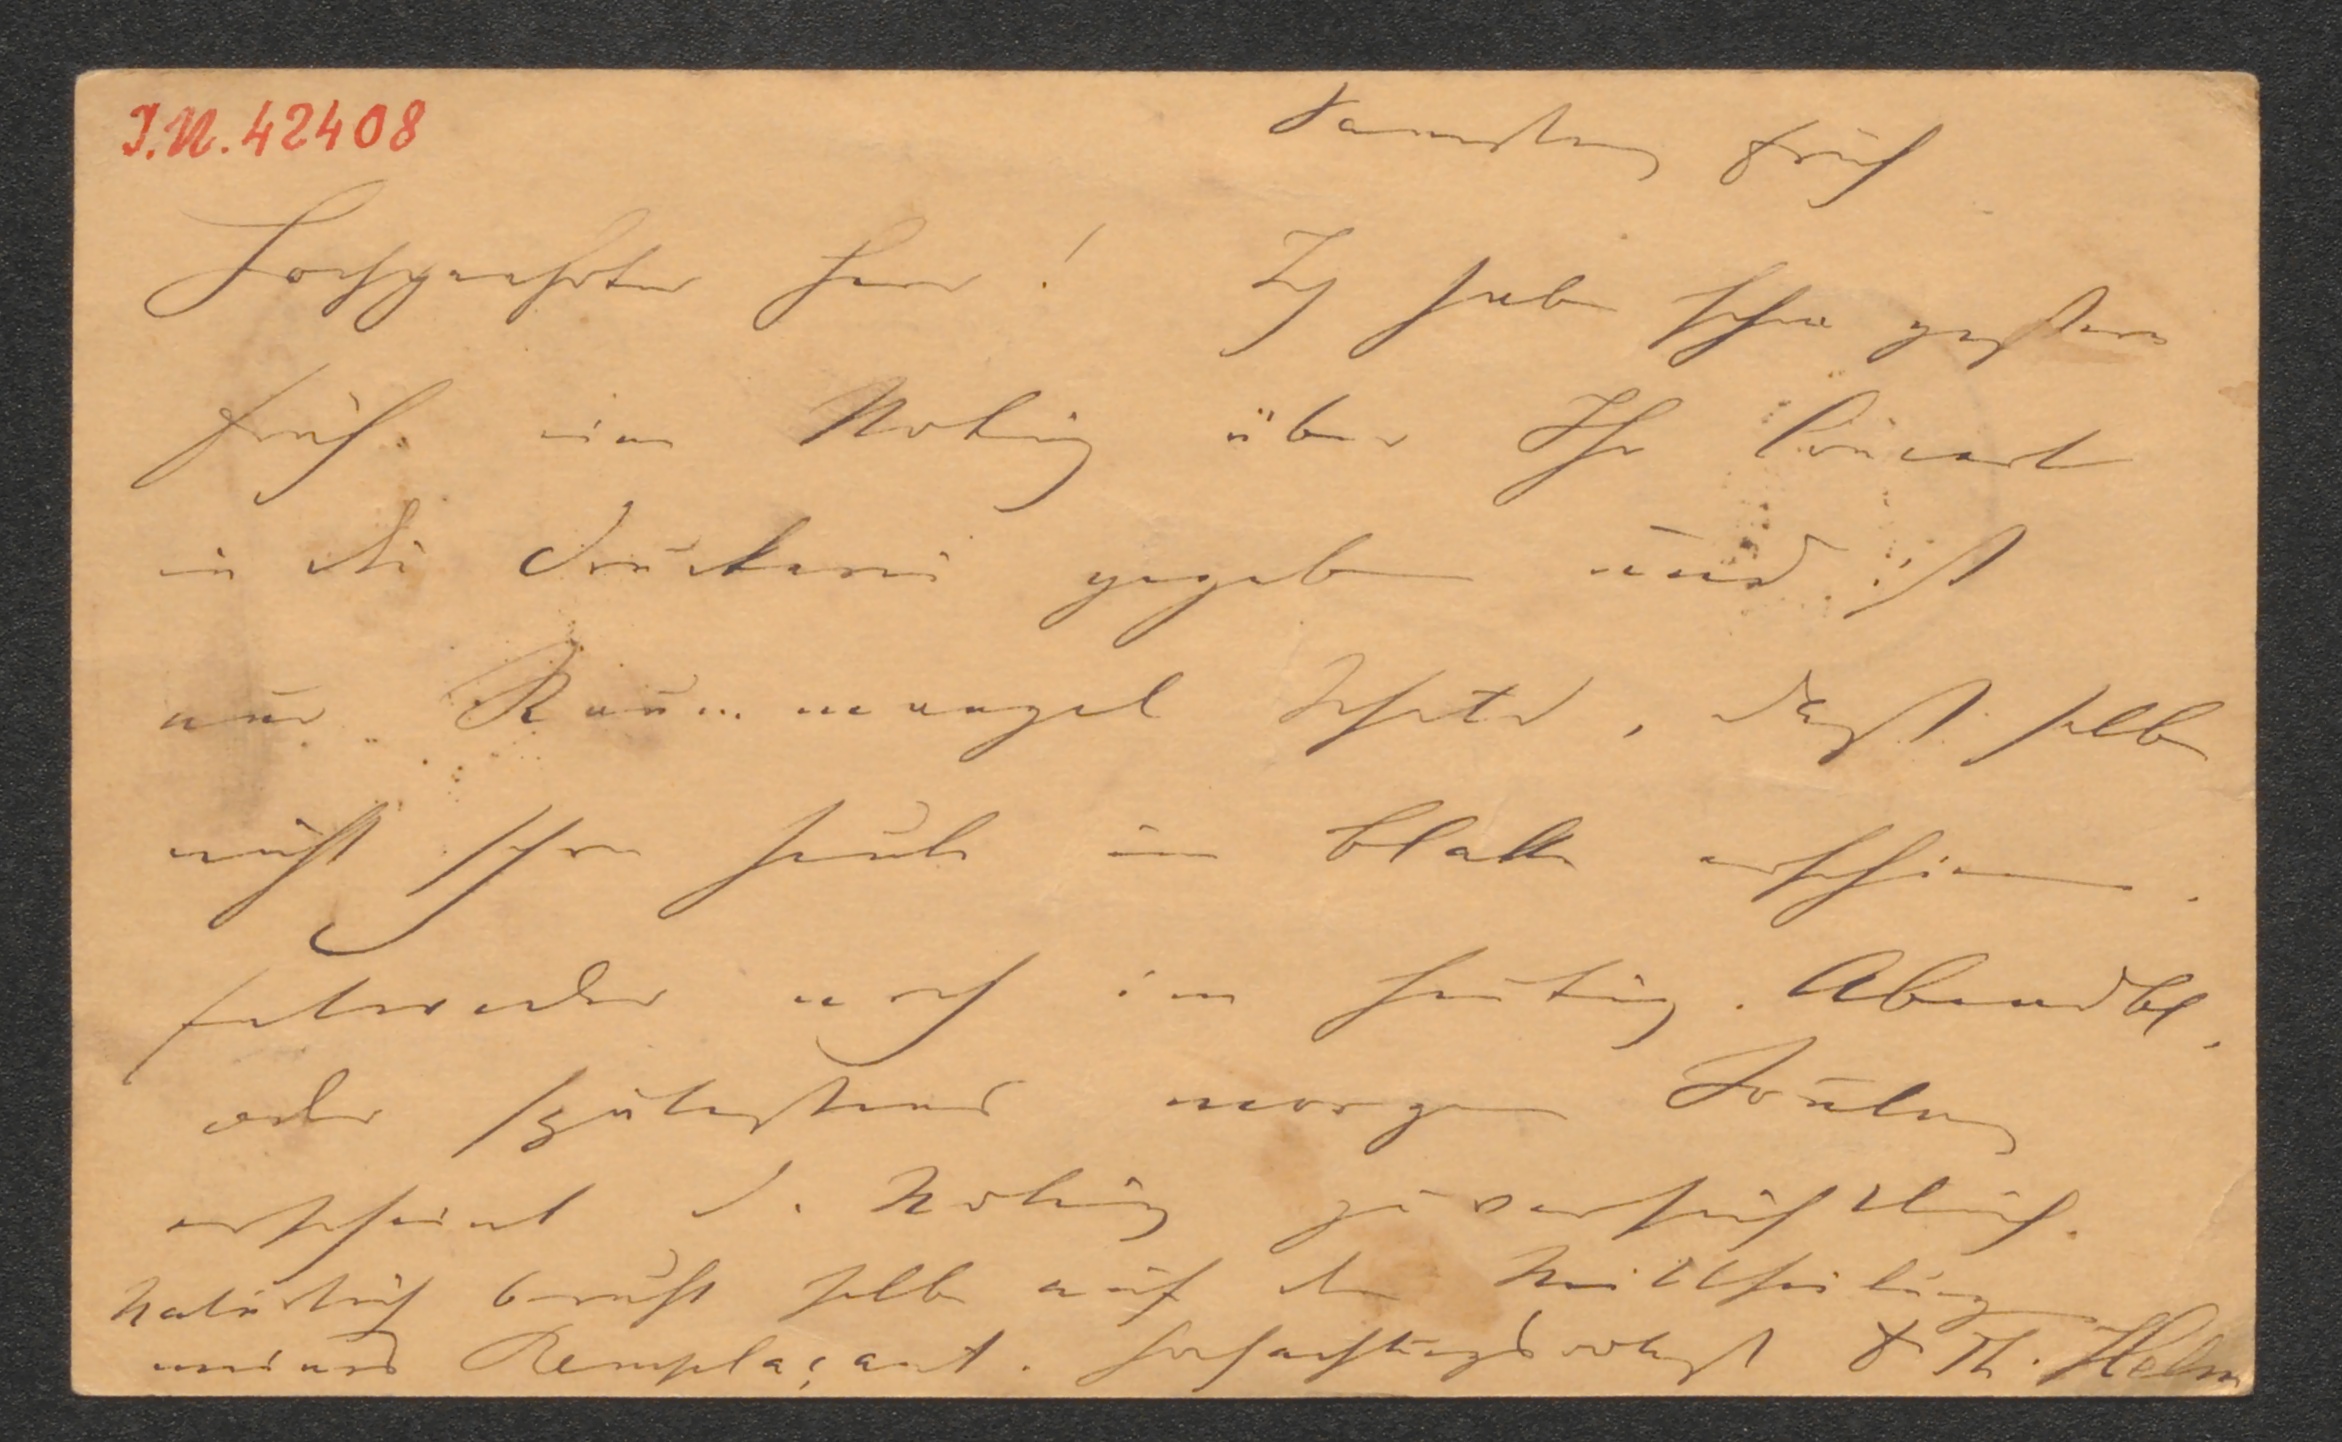 I.N. 42408
Samstag Früh
Hochgeehrter Herr! Ich habe schon gestern
Früh eine Notiz über Ihr Concert
in die Druckerei gegeben und ist
nur Raummangel Schuld, daß selbe
nicht schon heute im Blatte erschienen.
Entweder noch im heutig. Abendbl.
oder spätestens morgen Sonntag
erscheint d. Notiz zuversichtlich.
Natürlich beruht selbe auf den Mittheilungen
meines Remplaçant. Hochachtungsvollst Dr Th. Helm